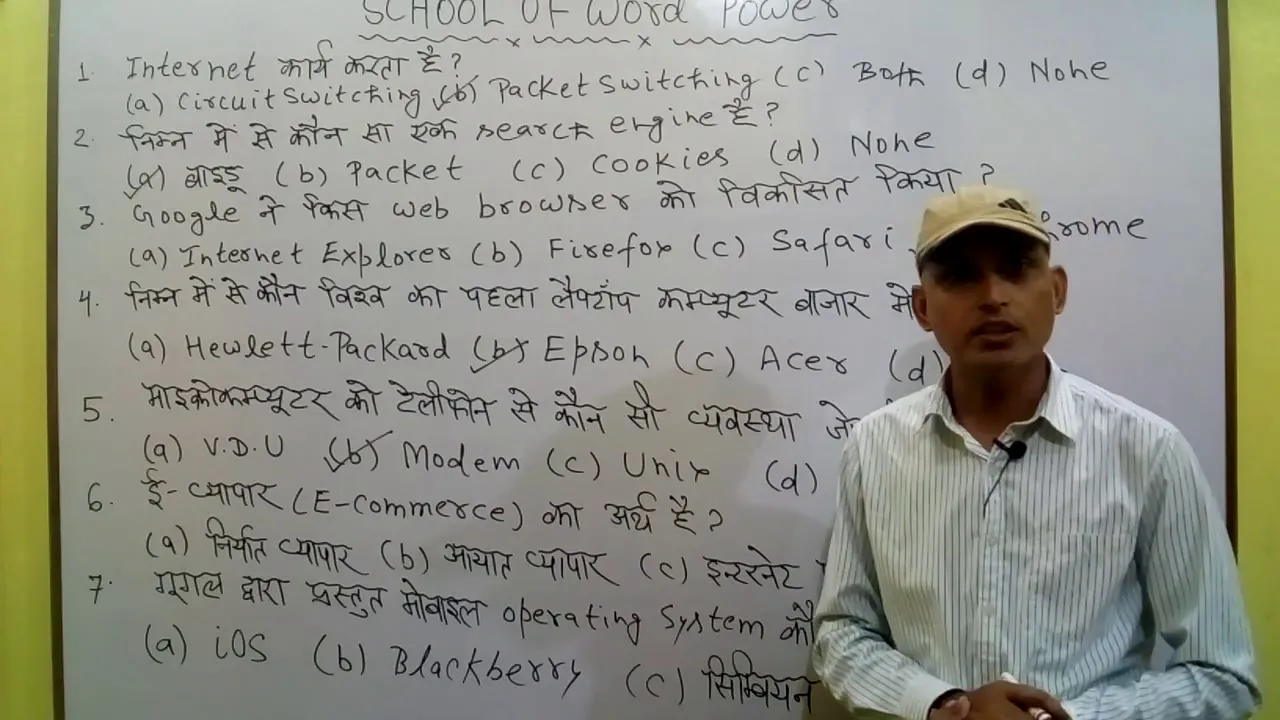 SCHOOL OF Word Power
1. Internet कार्य करता है ?
(a) Circuit Switching (b) Packet Switching (c) Both (d) None
2. निम्न में से कौन सा एक search engine है ?
(a) बाइडू (b) Packet (c) Cookies (d) None
3. Google ने किस web browser को विकसित किया ?
(a) Internet Explorer (b) Firefox (c) Safari rome
4. निम्न में से कौन विश्व का पहला लैपटॉप कम्प्यूटर बाजार में
(a) Hewlett-Packard (b) Epson (c) Acer (d)
5. माइक्रोकम्प्यूटर को टेलीफोन से कौन सी व्यवस्था
(a) V.D.U (b) Modem (c) Unix (d)
6. ई-व्यापार (E-commerce) का अर्थ है ?
(a) निर्यात व्यापार (b) आयात व्यापार (c) इन्टरनेट
7. गूगल द्वारा प्रस्तुत मोबाइल operating System कौ
(a) iOS (b) Blackberry (c) सिम्बियन